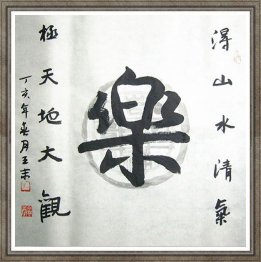 得山水清氣
樂
極天地大觀
丁亥年春月王末